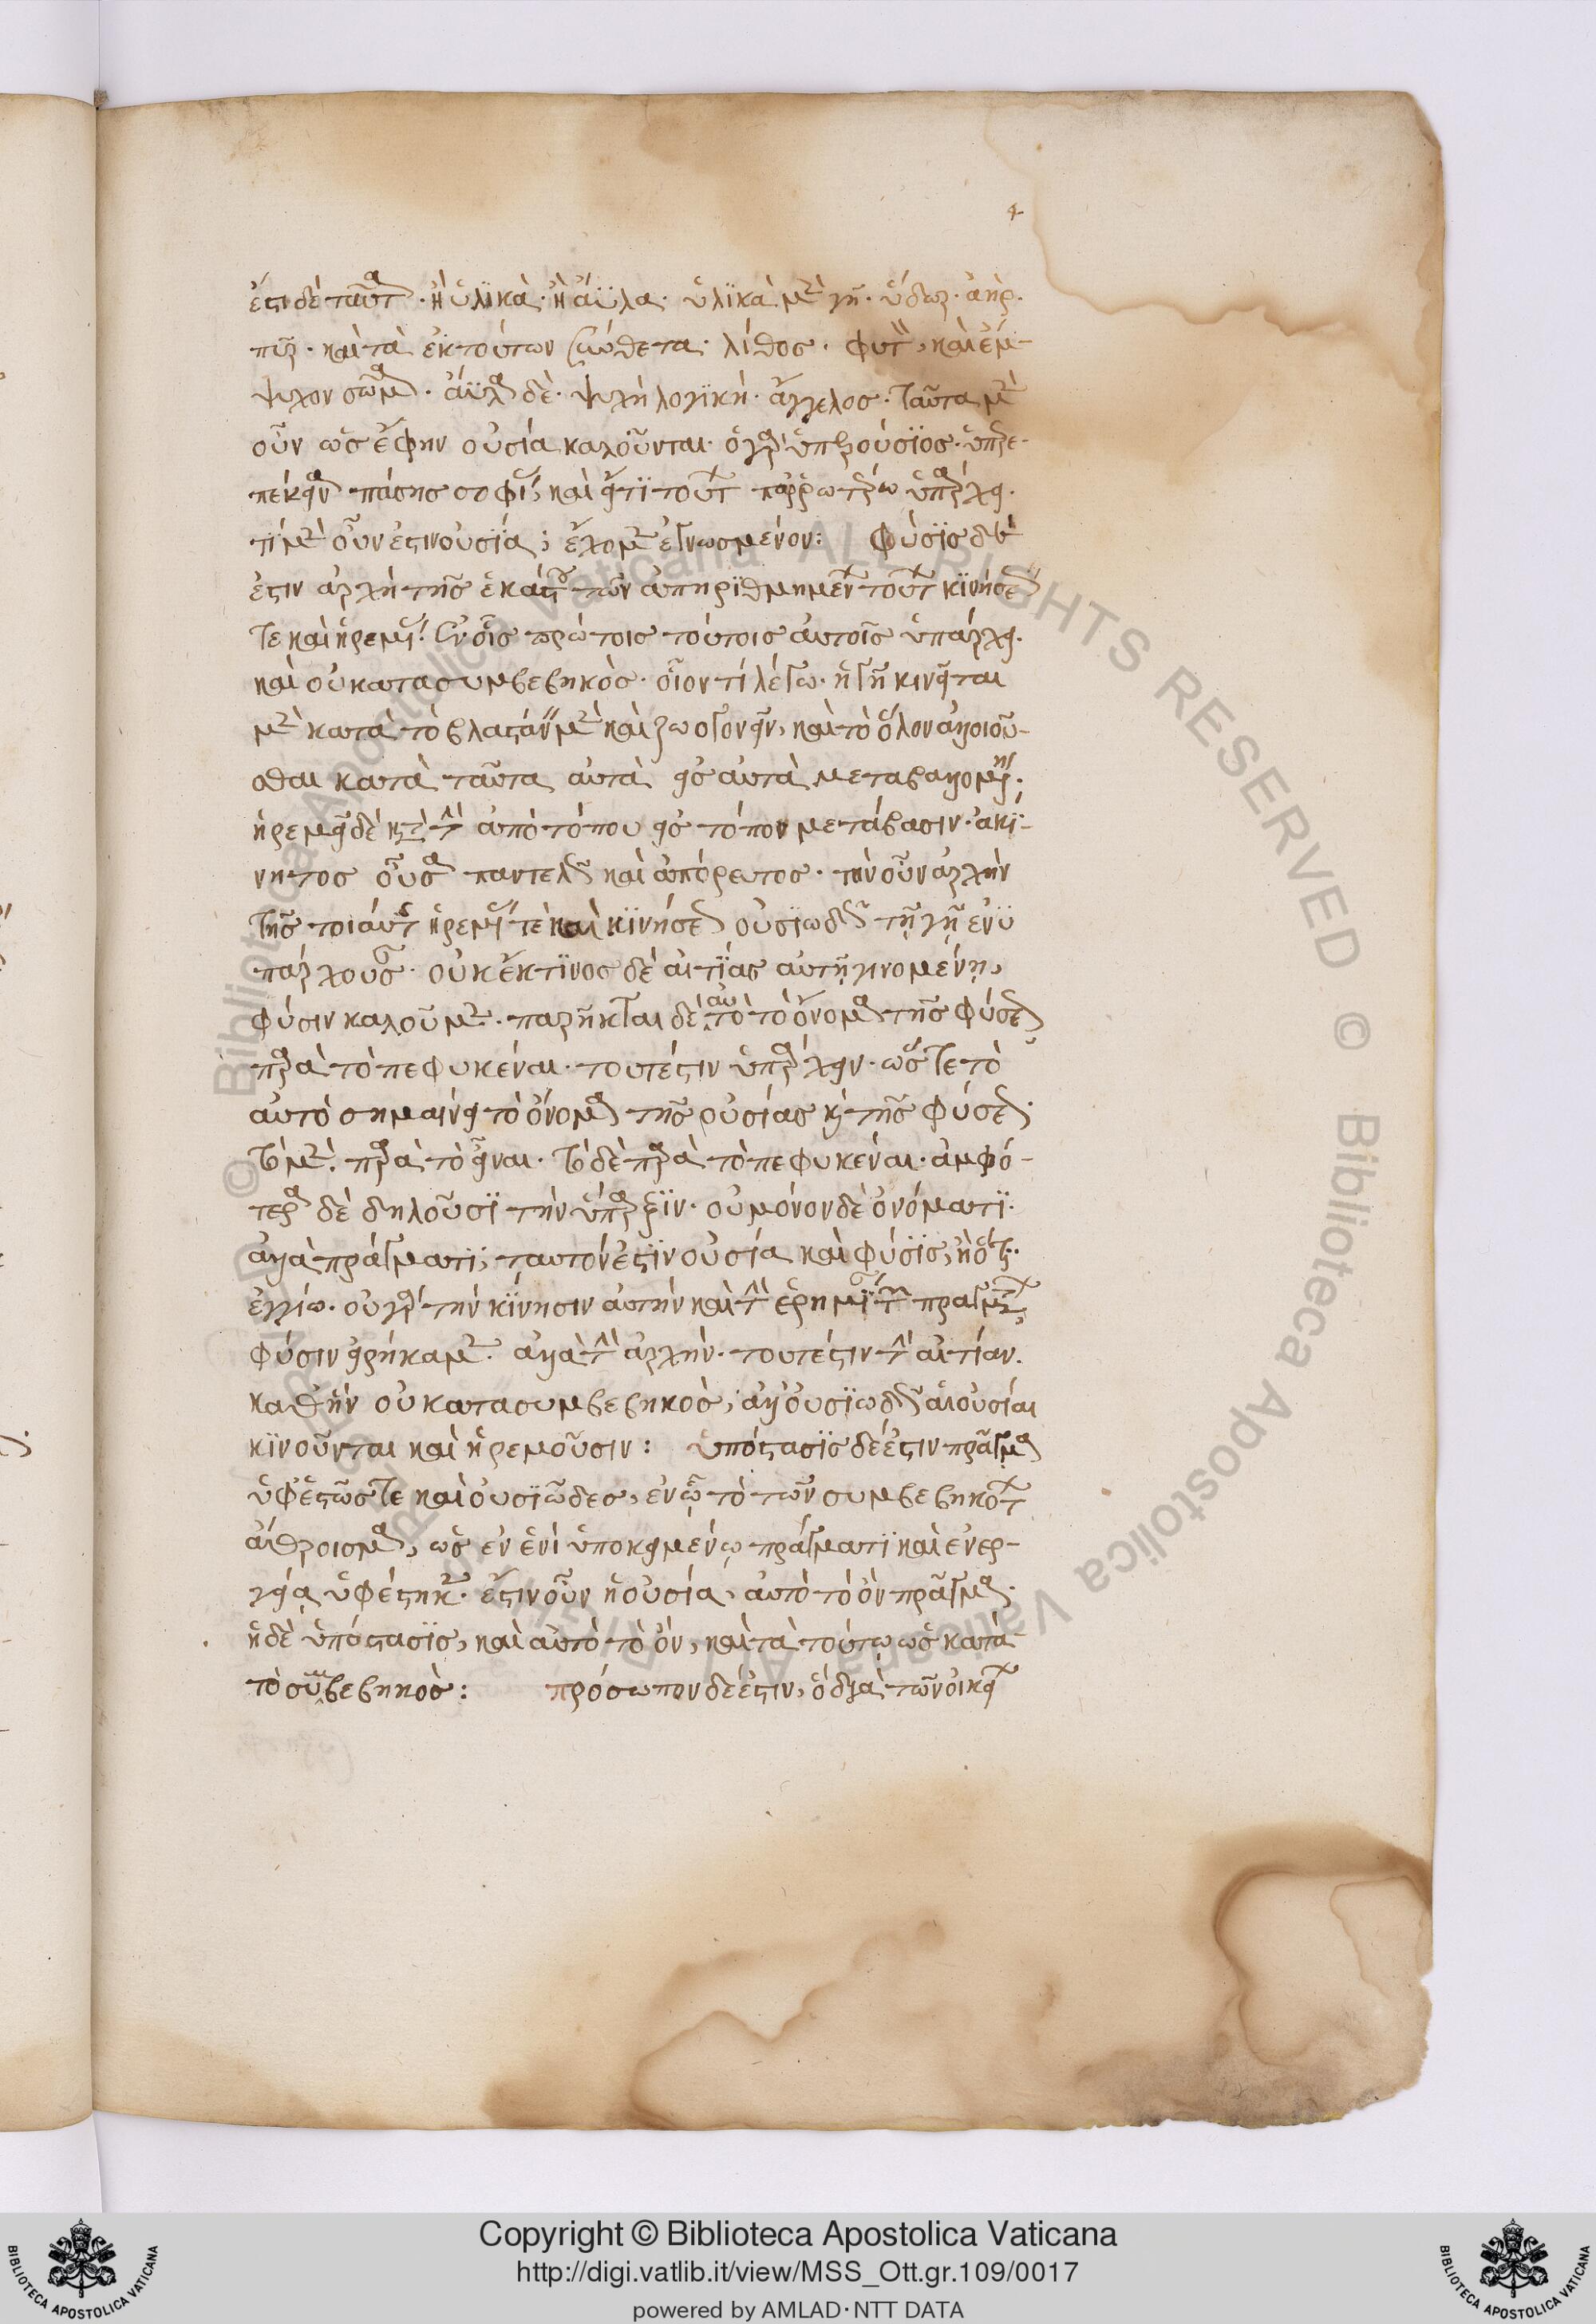 4
ἔστι δὲ ταῦτα· ἢ ὑλϊκὰ· ἢ ἄϋλα· ὑλϊκὰ μὲν γῆ· ὕδωρ· ἀὴρ·
πῦρ· καὶ τὰ ἐκ τούτων σύνθετα· λίθος· φυτὸν, καὶ ἔμ-
ψυχον σῶμα· ἄϋλα δὲ· ψυχὴ λογϊκὴ· ἄγγελος· ταῦτα μὲν
οὖν ὡς ἔφην οὐσία καλοῦνται· ὁ γὰρ ὑπερούσϊος· ὑπερε-
πέκεινα πάσης καὶ εἴ τϊ τούτων πορρωτέρω ὑπάρχει·
τί μὲν οὖν ἐστιν οὐσϊα; ἔχομεν ἐγνωσμένον: Φύσϊς δέ
ἐστιν ἀρχὴ τῆς ἑκάστου τῶν ἀπηρϊθμημένων τούτων κϊνήσεώς
τε καὶ ἠρεμίας· ἐν οἷς πρώτοις τούτοις αὐτοῖς ὑπάρχει·
καὶ οὐ κατασυμβεβηκὸς· οἷον τί λέγω· ἡ γῆ κινεῖται
μὲν κατὰ τὸ βλαστάνειν μὲν καὶ ζωογονεῖν, καὶ τὸ ὅλον ἀλλοιοῦ-
σθαι κατὰ ταῦτα αὐτὰ εἰς αὐτὰ μεταβαλλομένη·
ἠρεμεῖ δὲ κατὰ τὴν ἀπὸ τόπου εἰς τόπον μετάβασιν· ἀκί-
νητος οὖσα παντελῶς καὶ ἀπόρευτος· τὴν οὖν ἀρχὴν
τῆς τοιαύτης ἠρεμίας τὲ καὶ κϊνήσεως οὐσϊωδῶς τῇ γῇ ἐνϋ
παρχούσης· οὐκ ἔκ τϊνος δὲ αἰτίας αὐτῇ γινομένῃ,
φύσιν καλοῦμεν· παρῆκται δὲ αὐτὸ τὸ ὄνομα τῆς φύσεως
παρὰ τὸ πεφυκέναι· τουτέστιν ὑπάρχειν· ὥστε τὸ
αὐτὸ σημαίνει τὸ ὄνομα τῆς οὐσίας καὶ τῆς φύσεως·
τὸ μὲν· παρὰ τὸ εἶναι· τὸ δὲ παρὰ τὸ πεφυκέναι· ἀμφό-
τερα δὲ δηλοῦσϊ τὴν ὕπαρξϊν· οὐ μόνον δὲ ὀνόματϊ·
ἀλλὰ πράγματϊ, ταυτόν ἐστϊν οὐσία καὶ φύσϊς,
οὐ γὰρ τὴν κΐνησιν αὐτὴν καὶ τὴν ἐρημΐαν τῶν πραγμάτων,
φύσιν εἰρήκαμεν· ἀλλὰ τὴν ἀρχὴν· τουτέστιν τὴν αἰτίαν·
καθ' ἣν οὐ κατασυμβεβηκὸς, ἀλλ' οὐσϊωδῶς αἱ οὐσίαι
κϊνοῦνται καὶ ἠρεμοῦσιν: ὑπόστασϊς δέ ἐστιν πρᾶγμα
ὑφεστώς τε καὶ οὐσϊῶδες, ἐν ᾧ τὸ τῶν συμβεβηκότων
ἄθροισμα, ὡς ἐν ἑνὶ ὑποκειμένῳ πράγματϊ καὶ ἐνερ-
γείᾳ ὑφέστηκεν· ἔστιν οὖν ἡ οὐσία, αὐτὸ τὸ ὂν πρᾶγμα·
ἡ δὲ ὑπόστασϊς, καὶ αὐτὸ τὸ ὂν, καὶ τὰ τούτω ὡς κατὰ
τὸ συμβεβηκὸς: πρόσωπον δέ ἐστιν, ὃ διὰ τῶν οἰκείων
Copyright © Biblioteca Apostolica Vaticana
http://digi.vatlib.it/view/MSS_Ott.gr.109/0017
powered by AMLAD·NTT DATA
BIBLIOTECA APOSTOLICA VATICANA
BIBLIOTECA APOSTOLICA VATICANA
© Biblioteca Apostolica Vaticana ALL RIGHTS RESERVED
© Biblioteca Apostolica Vaticana ALL RIGHTS RESERVED